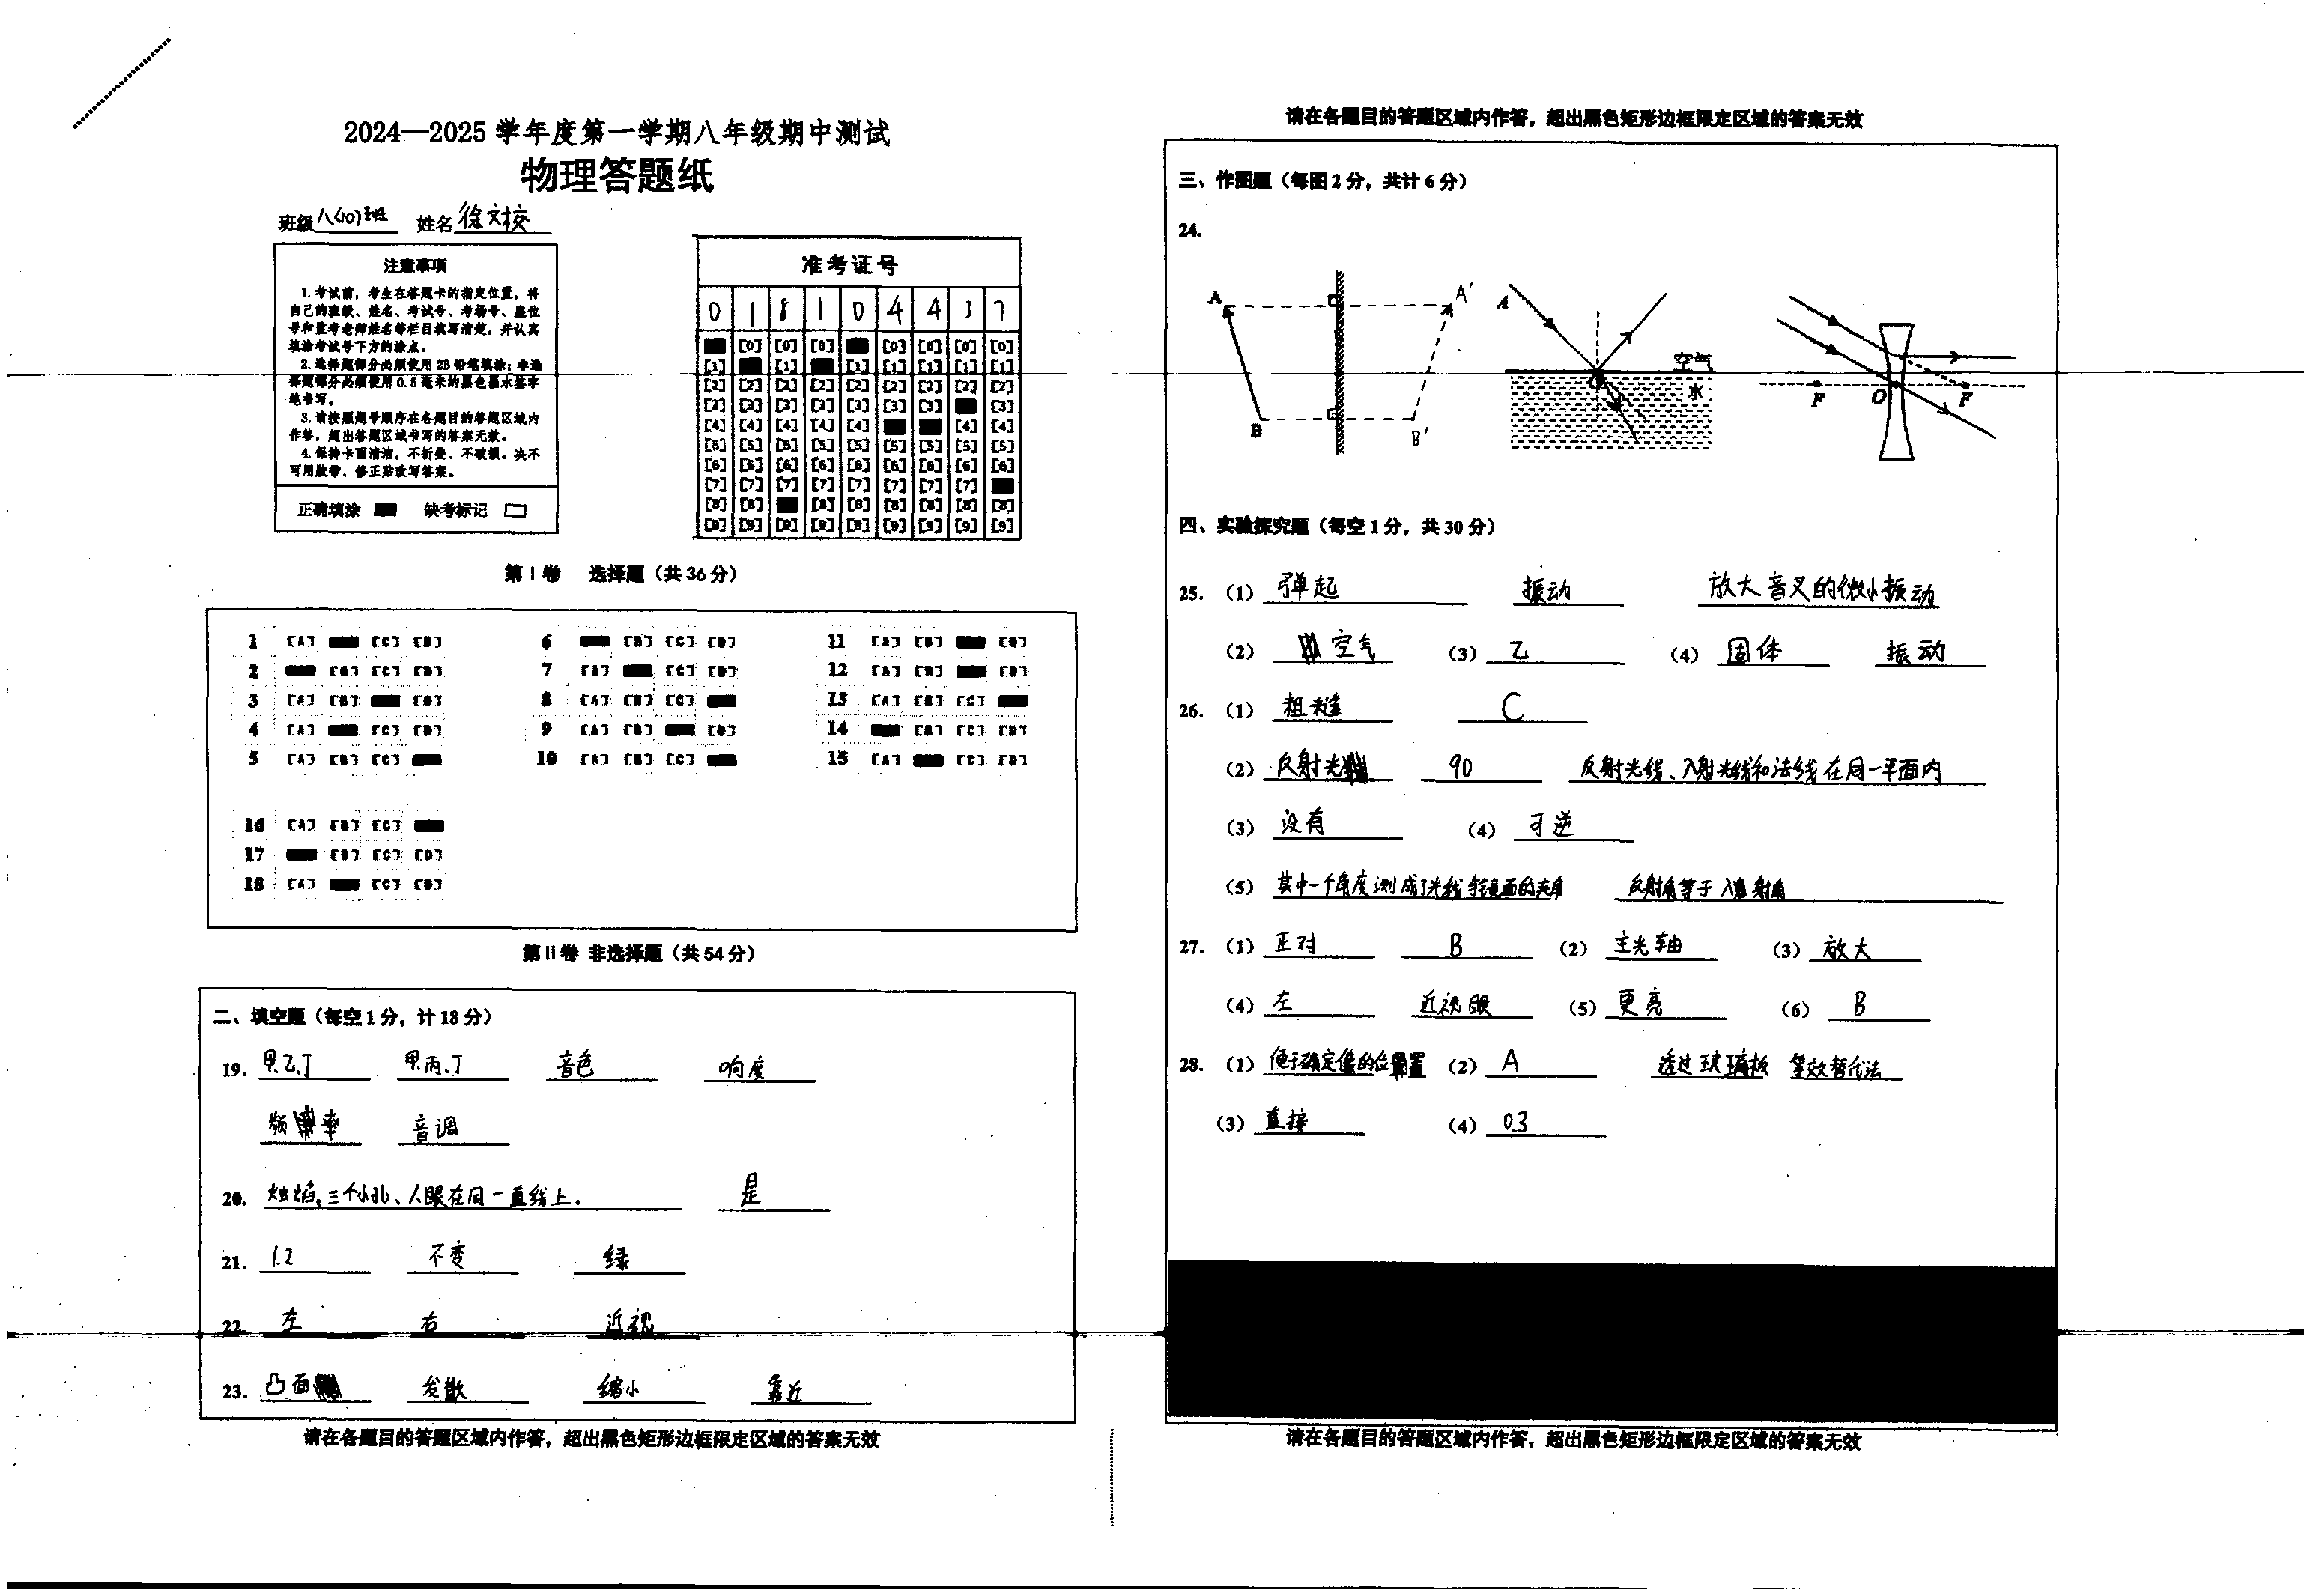 2024—2025 学年度第一学期八年级期中测试
物理答题纸
班级 八(10)班 姓名 徐文桉
注意事项
1.考试前，考生在答题卡的指定位置，将
自己的班级、姓名、考试号、考场号、座位
号和监考老师姓名等栏目填写清楚，并认真
填涂考试号下方的涂点。
2.选择题部分必须使用 2B 铅笔填涂；非选
择题部分必须使用 0.5 毫米的黑色墨水签字
笔书写。
3.请按照题号顺序在各题目的答题区域内
作答，超出答题区域书写的答案无效。
4.保持卡面清洁，不折叠、不破损。决不
可用胶带、修正贴改写答案。
正确填涂 缺考标记
准考证号
0 1 8 1 0 4 4 3 7
[0] [0] [0] [0] [0] [0] [0]
[1] [1] [1] [1] [1] [1] [1]
[2] [2] [2] [2] [2] [2] [2] [2] [2]
[3] [3] [3] [3] [3] [3] [3] [3]
[4] [4] [4] [4] [4] [4] [4]
[5] [5] [5] [5] [5] [5] [5] [5] [5]
[6] [6] [6] [6] [6] [6] [6] [6] [6]
[7] [7] [7] [7] [7] [7] [7] [7]
[8] [8] [8] [8] [8] [8] [8] [8]
[9] [9] [9] [9] [9] [9] [9] [9] [9]
第 I 卷 选择题（共 36 分）
1 [A] [C] [D] 6 [B] [C] [D] 11 [A] [B] [D]
2 [B] [C] [D] 7 [A] [C] [D] 12 [A] [B] [D]
3 [A] [B] [D] 8 [A] [B] [C] 13 [A] [B] [C]
4 [A] [C] [D] 9 [A] [B] [D] 14 [B] [C] [D]
5 [A] [B] [C] 10 [A] [B] [C] 15 [A] [C] [D]
16 [A] [B] [C]
17 [B] [C] [D]
18 [A] [C] [D]
第 Ii 卷 非选择题（共 54 分）
二、填空题（每空 1 分，计 18 分）
19. 甲.乙.丁 甲.丙.丁 音色 响度
频率 音调
20. 烛焰、三个小孔、人眼在同一直线上. 是
21. 1.2 不变 绿
22. 左 右 近视
23. 凸面 发散 缩小 靠近
请在各题目的答题区域内作答，超出黑色矩形边框限定区域的答案无效
请在各题目的答题区域内作答，超出黑色矩形边框限定区域的答案无效
三、作图题（每图 2 分，共计 6 分）
24.
A A' B B'
A 空气 水
F O F
四、实验探究题（每空 1 分，共 30 分）
25.（1） 弹起 振动 放大音叉的微小振动
（2） 空气 （3） 乙 （4） 固体 振动
26.（1） 粗糙 C
（2） 反射光 90 反射光线、入射光线和法线在同一平面内
（3） 没有 （4） 可逆
（5） 其中一个角度测成了光线与镜面的夹角 反射角等于入射角
27.（1） 正对 B （2） 主光轴 （3） 放大
（4） 左 近视眼 （5） 更亮 （6） B
28.（1） 便于确定像的位置 （2） A 透过玻璃板 等效替代法
（3） 直接 （4） 0.3
请在各题目的答题区域内作答，超出黑色矩形边框限定区域的答案无效